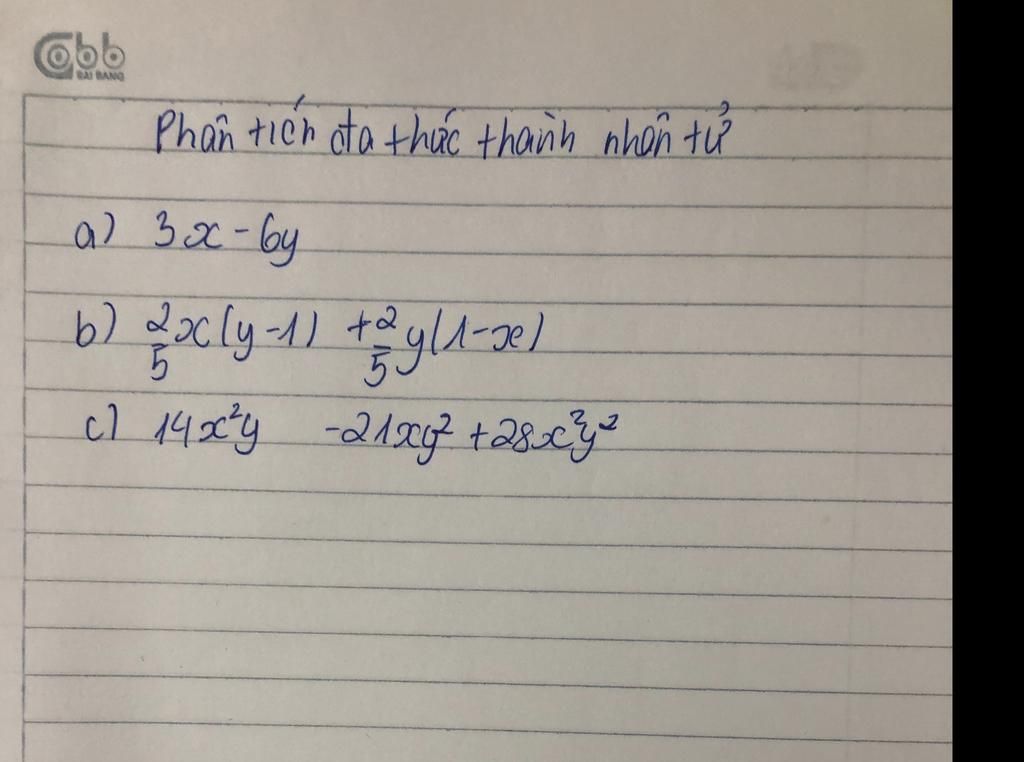 Cobb
BAI BANG
Phân tiến đa thức thành nhân tử
a) 3x - 6y
b) 2/5 x(y-1) + 2/5 y(1-x)
c) 14x²y - 21xy² + 28x²y²